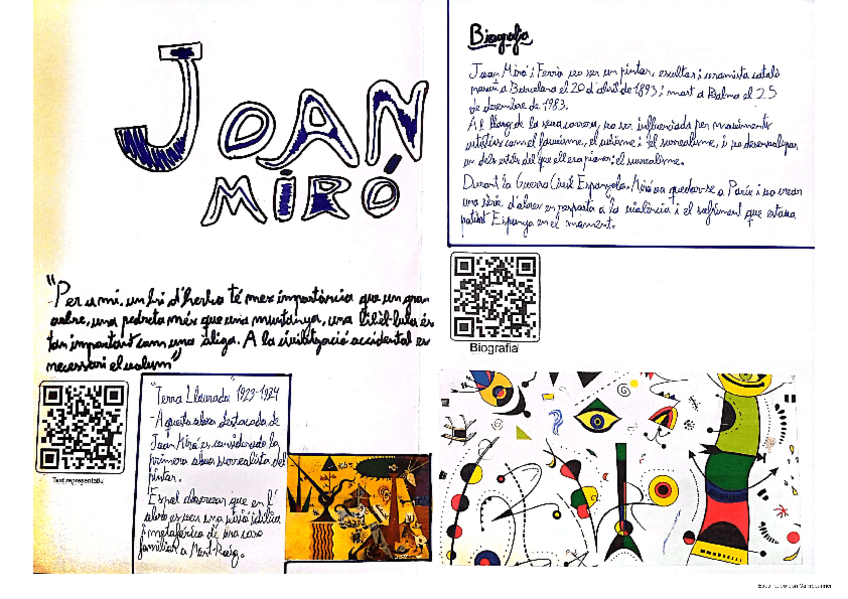 JOAN
MIRÓ
"Per a mi, un bri d'herba té més importància que un gran
arbre, una pedreta més que una muntanya, una libèl·lula és
tan important com una àliga. A la civilització occidental es
necessari el volum"
Text representatiu
"Terra Llaurada" 1923-1924
-Aquesta obra destacada de
Joan Miró es considerada la
primera obra surrealista del
pintor.
Es pot observar que en l'
obra es veu una visió idílica
i metafòrica de una casa
familiar a Mont-Roig.
Biografia
Joan Miró i Ferrà va ser un pintor, escultor i ceramista català
nascut a Barcelona el 20 d'abril de 1893 i mort a Palma el 25
de desembre de 1983.
Al llarg de la seva carrera, va ser influenciada per moviments
artístics com el fauvisme, el cubisme i el surrealisme, i va desenvolupar
un dels estils del que ell era pioner: el surrealisme.
Durant la Guerra Civil Espanyola, Miró va quedar-se a París i va crear
una sèrie d'obres en resposta a la violència i el sofriment que estava
patint Espanya en el moment.
Biografia